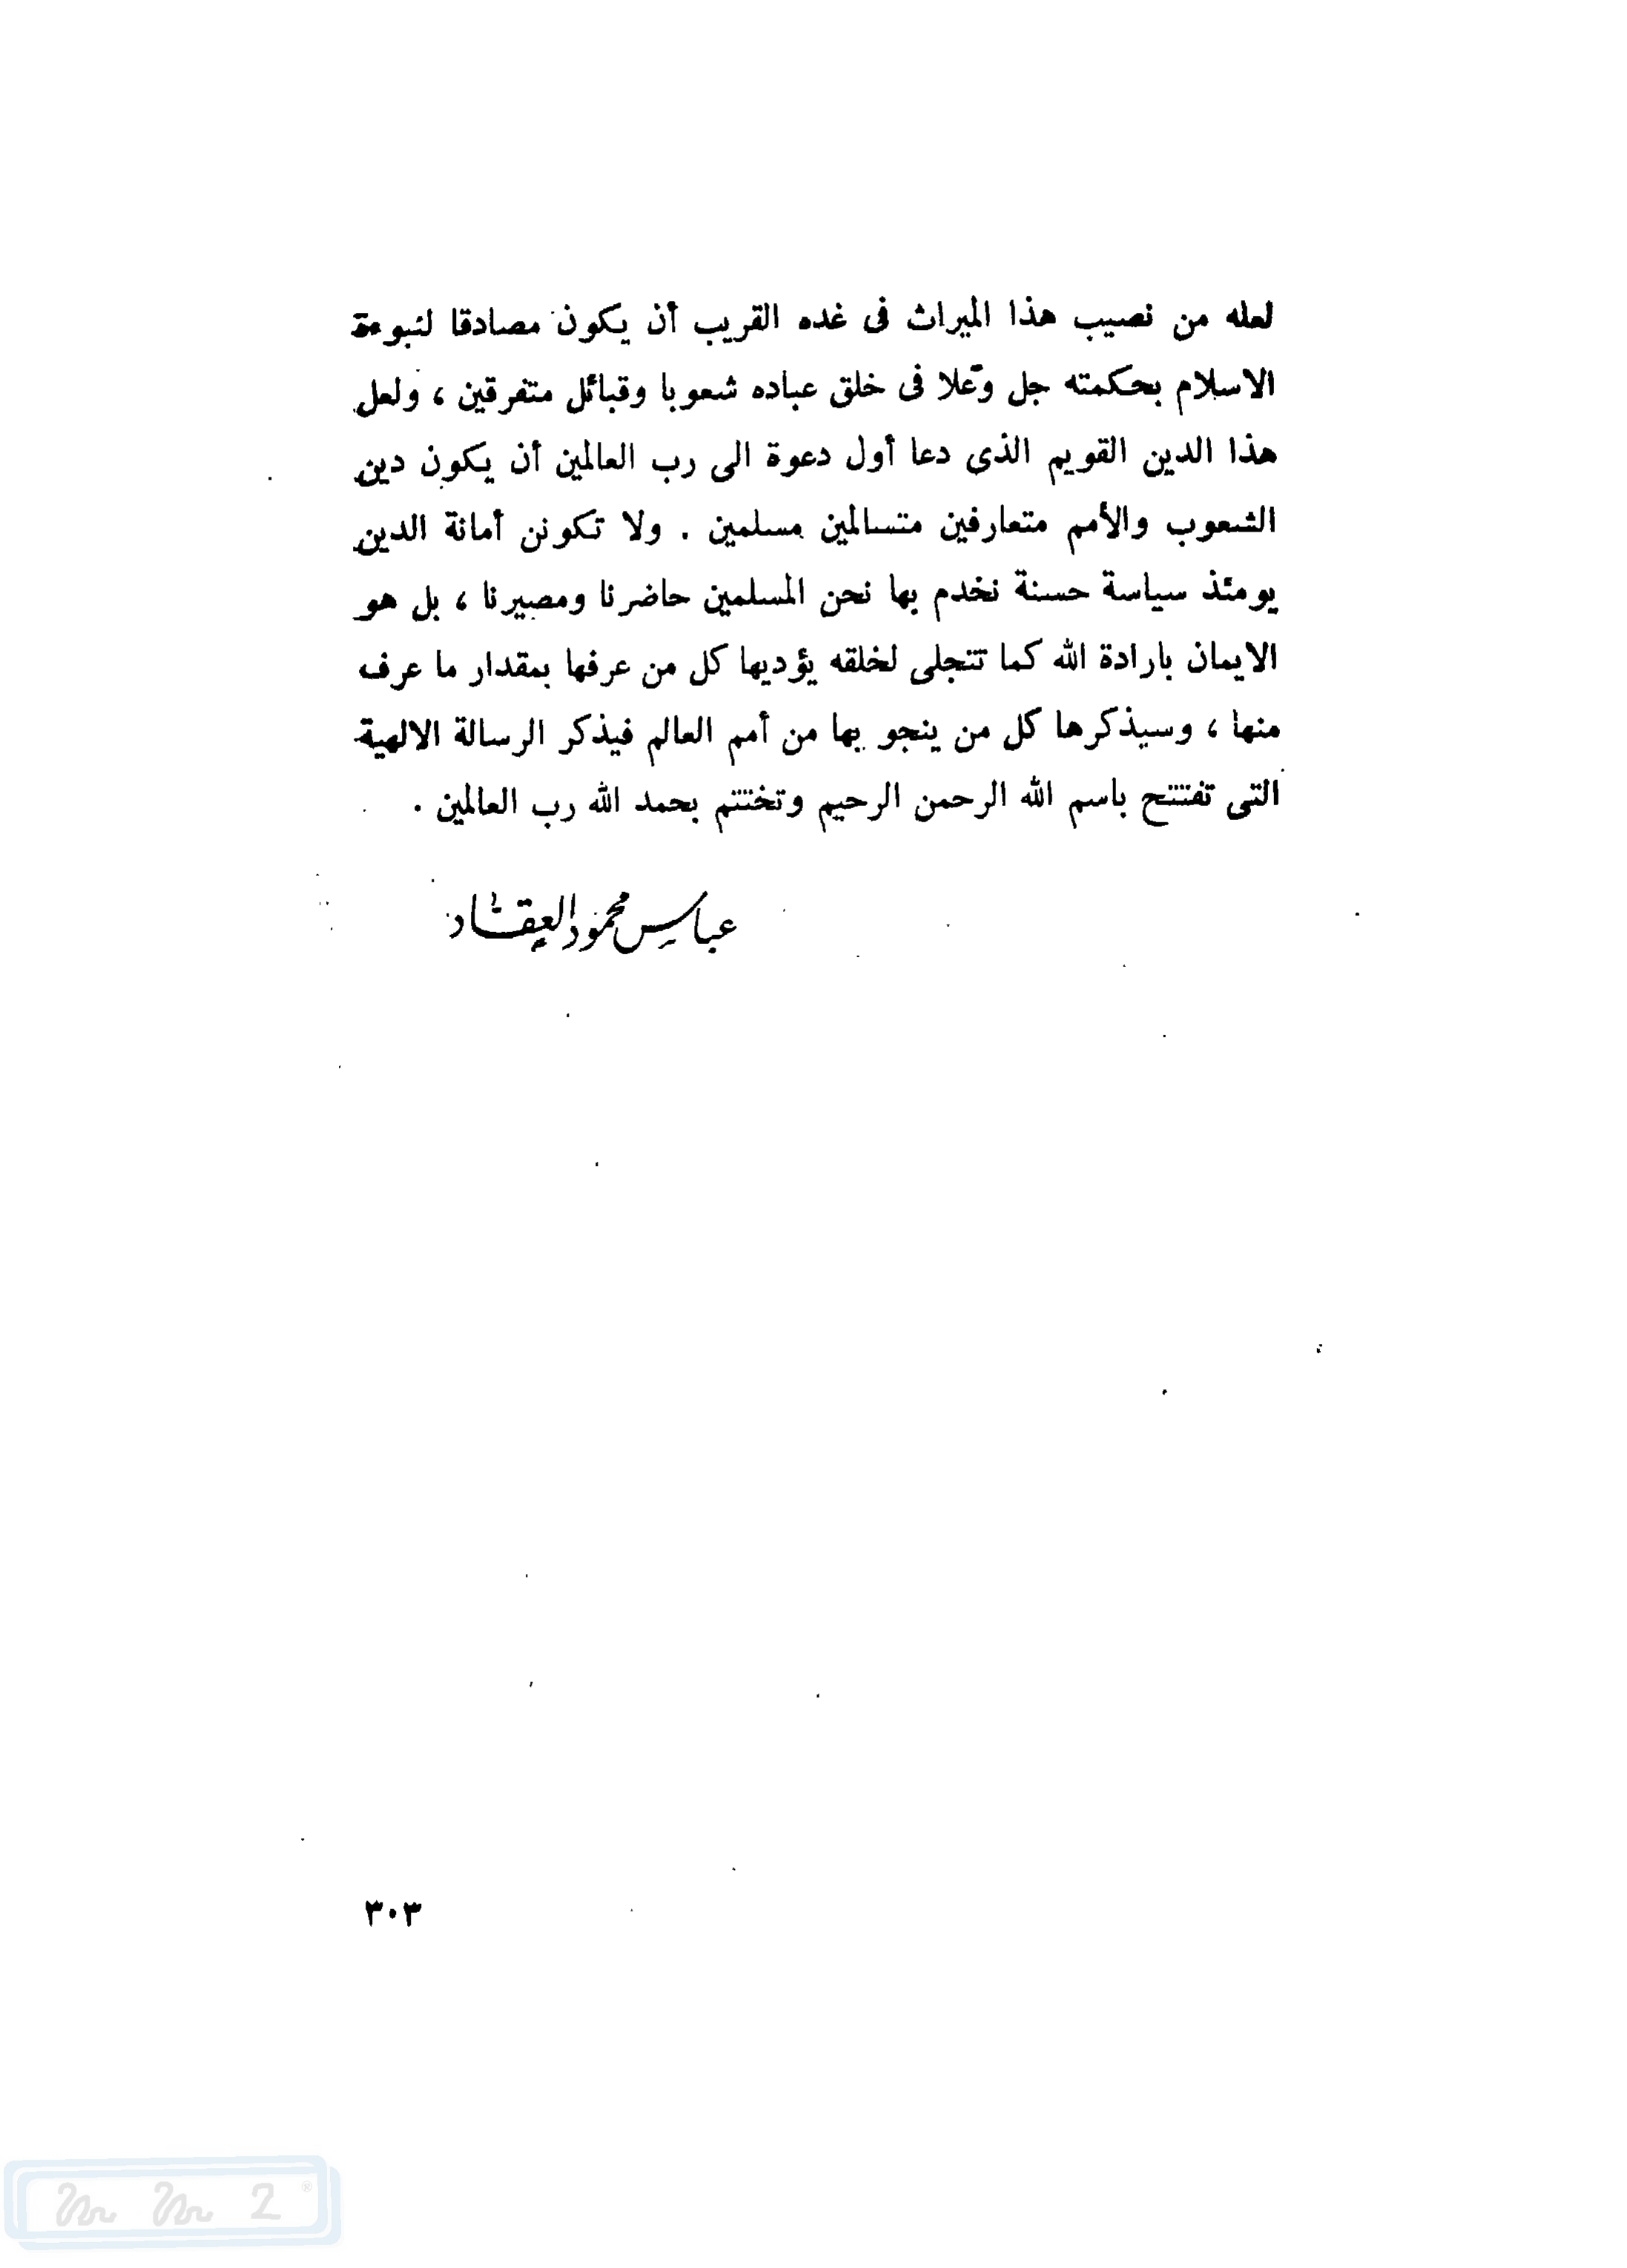 لعله من نصيب هذا الميراث فى غده القريب أن يكون مصادقا لنبوءة
الاسلام بحكمته جل وعلا فى خلق عباده شعوبا وقبائل متفرقين ، ولعل
هذا الدين القويم الذى دعا أول دعوة الى رب العالمين أن يكون دين
الشعوب والأمم متعارفين متسالمين مسلمين . ولا تكونن أمانة الدين
يومئذ سياسة حسنة نخدم بها نحن المسلمين حاضرنا ومصيرنا ، بل هو
الايمان بارادة الله كما تتجلى لخلقه يؤديها كل من عرفها بمقدار ما عرف
منها ، وسيذكرها كل من ينجو بها من أمم العالم فيذكر الرسالة الالهية
التى تفتتح باسم الله الرحمن الرحيم وتختتم بحمد الله رب العالمين .
عباس محمود العقاد
٣٠٣